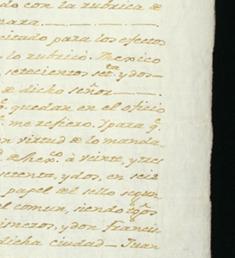 do con la rubrica de
mara.
icitado para los efectos
lo rubricó. Mexico
setecientos setᵗᵃ y dos-
de dicho señor
q.ᵉ quedan en el oficio
me refiero. Y para q.ᵉ
en virtud de lo manda-
de Mex.ᶜᵒ à veinte, y tres
setenta, y dos, en seis
papel mi sello segun
el comun, siendo tgõs
imeros, y don Francis-
dicha ciudad Juan